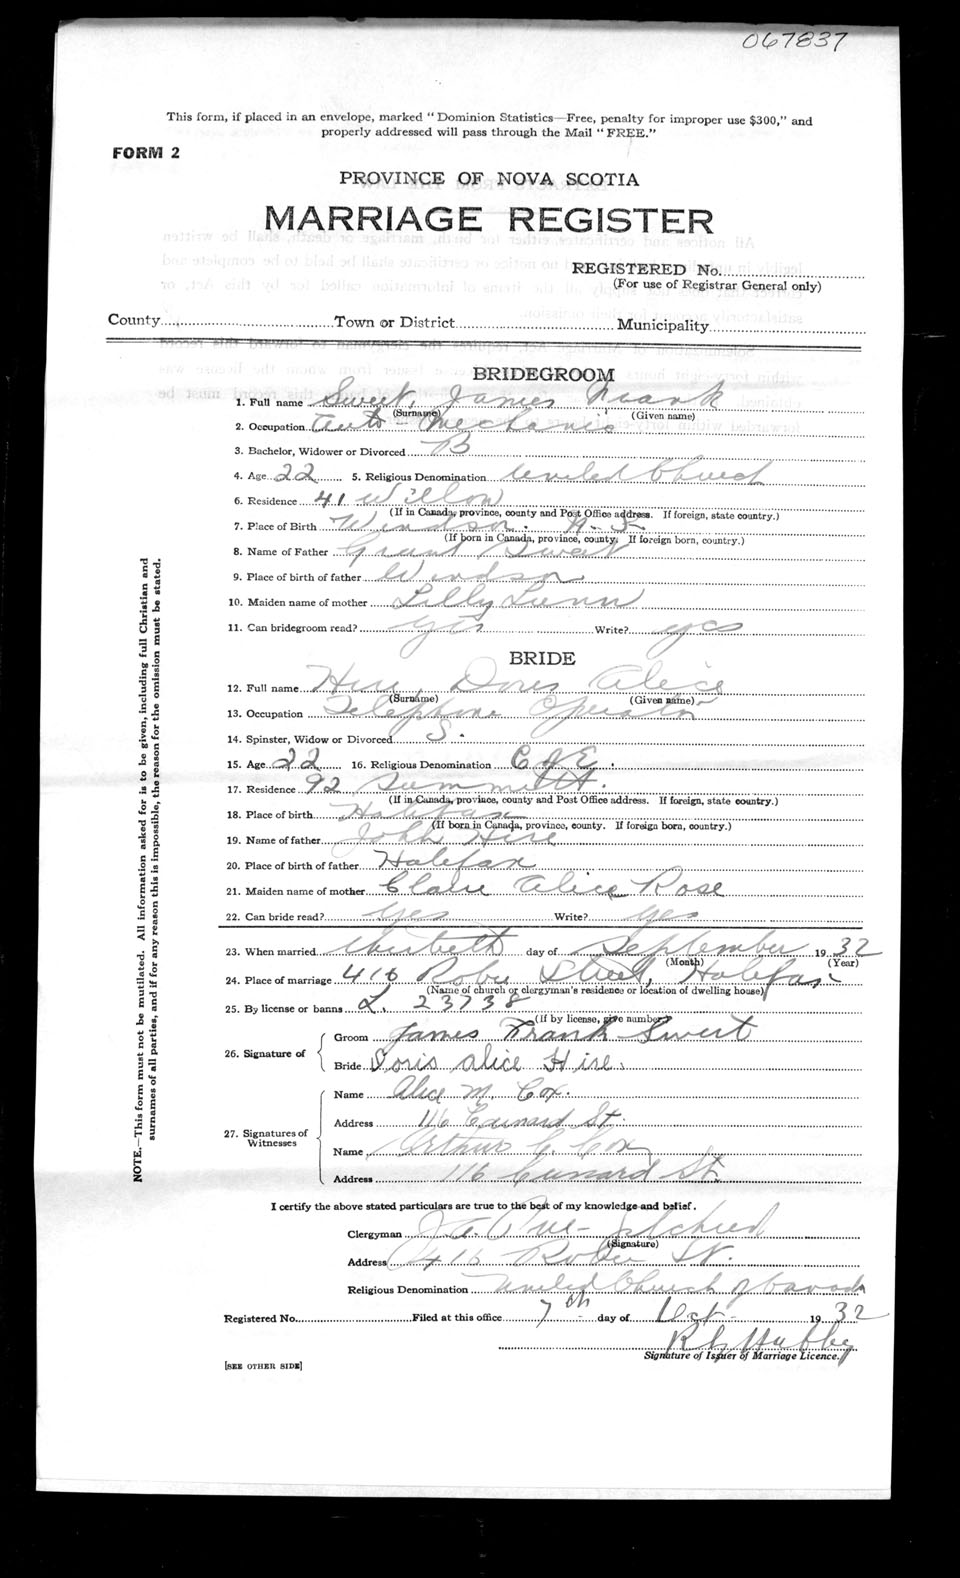 067837
This form, if placed in an envelope, marked "Dominion Statistics—Free, penalty for improper use $300," and
properly addressed will pass through the Mail "FREE."
FORM 2
PROVINCE OF NOVA SCOTIA
MARRIAGE REGISTER
REGISTERED No.
(For use of Registrar General only)
County Town or District Municipality
BRIDEGROOM
1. Full name Sweet, James Frank
(Surname) (Given name)
2. Occupation Auto Mechanic
3. Bachelor, Widower or Divorced B
4. Age 22 5. Religious Denomination United Church
6. Residence 41 Willow
(If in Canada, province, county and Post Office address. If foreign, state country.)
7. Place of Birth Windsor. N.S.
(If born in Canada, province, county. If foreign born, country.)
8. Name of Father Grant Sweet
9. Place of birth of father Windsor
10. Maiden name of mother Lilly Lunn
11. Can bridegroom read? yes Write? yes
BRIDE
12. Full name Hire, Doris Alice
(Surname) (Given name)
13. Occupation Telephone Operator
14. Spinster, Widow or Divorced S.
15. Age 22 16. Religious Denomination C of E.
17. Residence 92 Summitt.
(If in Canada, province, county and Post Office address. If foreign, state country.)
18. Place of birth Halifax
(If born in Canada, province, county. If foreign born, country.)
19. Name of father John Hire
20. Place of birth of father Halifax
21. Maiden name of mother Claire Alice Rose
22. Can bride read? yes Write? yes
23. When married day of September 1932
(Month) (Year)
24. Place of marriage 416 Robie Street, Halifax
(Name of church or clergyman's residence or location of dwelling house)
25. By license or banns L. 23738
(If by license, give number)
26. Signature of Groom James Frank Sweet
Bride Doris Alice Hire
27. Signatures of Witnesses Name Alice M. Cox.
Address 116 Cunard St.
Name Arthur C. Cox
Address 116 Cunard St.
I certify the above stated particulars are true to the best of my knowledge and belief.
Clergyman
(Signature)
Address 416 Robie St.
Religious Denomination United Church of Canada
Registered No. Filed at this office 7th day of Oct 1932
Signature of Issuer of Marriage Licence.
[SEE OTHER SIDE]
NOTE.—This form must not be mutilated. All information asked for is to be given, including full Christian and
surnames of all parties, and if for any reason this is impossible, the reason for the omission must be stated.